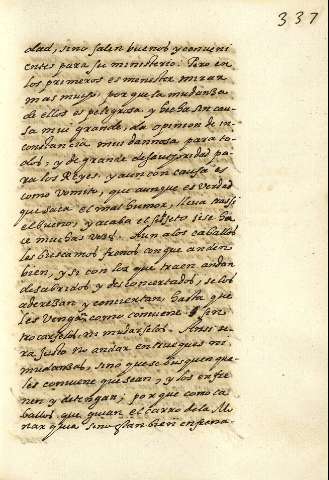 337
dad, sino salen buenos y conveni
entes para su ministerio. Pero en
los primeros es menester mirar
mas mucho, porque la mudanza
de ellos es peligrosa, y hecha sin cau-
sa mui grande, da opinion de in-
constancia mui dannosa para to-
dos, y de grande desauthoridad pa-
ra los Reyes, y aun con causa es
como vomito, que aunque es verdad
que saca el mal humor, lleva trassi
el bueno, y acaba el subjeto si se ha-
ce muchas vezes. Aun a los caballos
les buscamos frenos con que anden
bien, y si con los que traen andan
desabridos y desconcertados, se los
aderezan y conciertan, hasta que
les vengan como conviene, sin
trocarselos, ni mudarselos. Ansi se-
ra justo no andar en trueques ni
mudanzas, sino que se busquen que
les conviene que sean, y los enfre-
nen y detengan; porque como ca-
ballos que guian el carro de la Mo-
narquia sino estan bien enfrena-